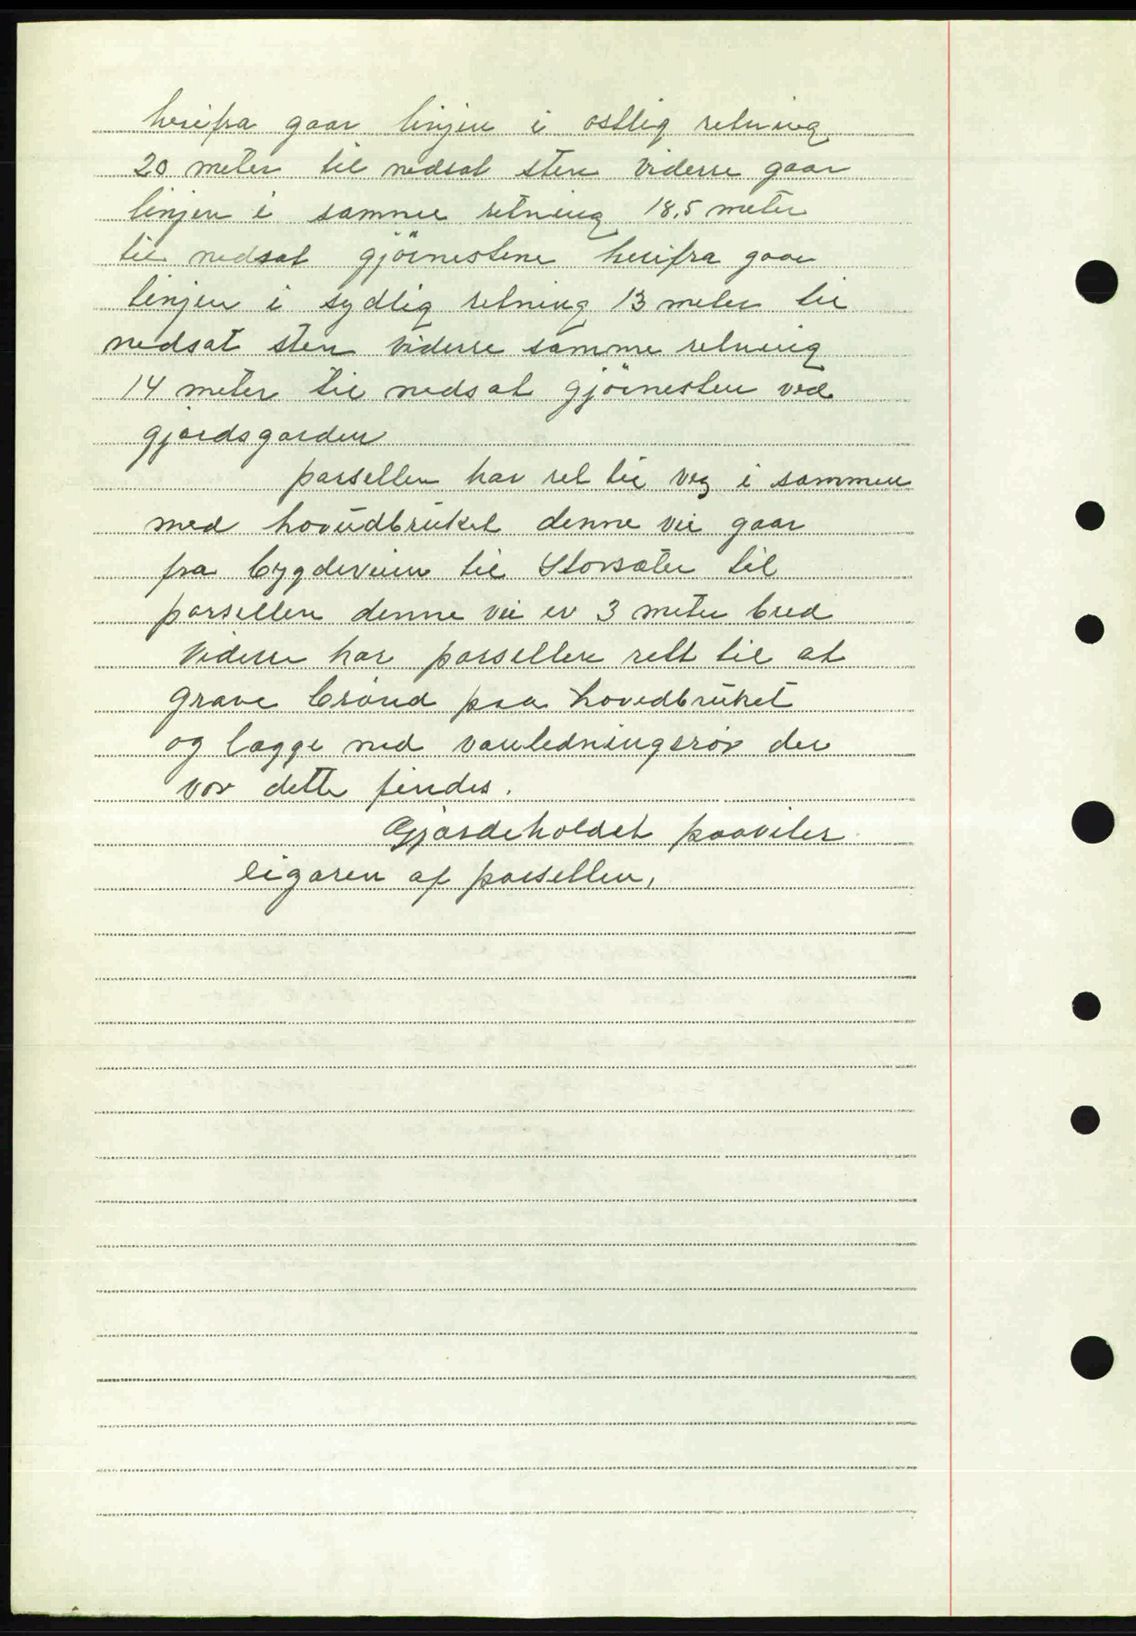 herifra gaar linjen i østlig retning
20 meter til nedsat sten viderre gaar
linjen i samme retning 18,5 meter
til nedsat gjörnestene herifra gaar
linjen i sydlig retning 13 meter til
nedsat sten viderre samme retning
14 meter til nedsat gjörnesten ved
gjærdsgarden
parsellen har ret til veg i sammen
med hovudbruket denne vei gaar
fra bygdeveien til Storsæter til
parsellen denne vei er 3 meter bred
Viderre har parsellen rett til at
grave brönd paa hovedbruket
og lægge ned vanledningsrör der
vor dette findes.
Gjærdeholdet paaviler
eigaren af parsellen,